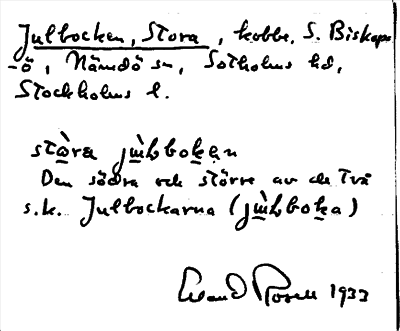 Julbocken, Stora, kobbe, S. Biskops-
-ö, Nämdö sn, Sotholms hd,
Stockholms l.
stòra jùlbokən
Den södra och större av de två
s.k. Julbockarna (jùlboka)
Rosell 1933